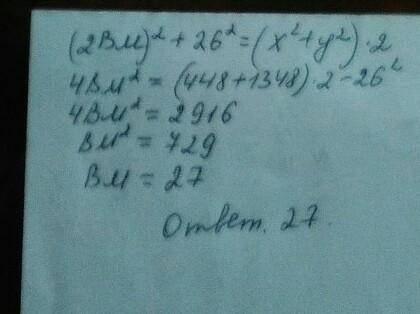 (2ВМ)² + 26² = (x² + y²) · 2
4ВМ² = (448 + 1348) · 2 - 26²
4ВМ² = 2916
ВМ² = 729
ВМ = 27
Ответ. 27.